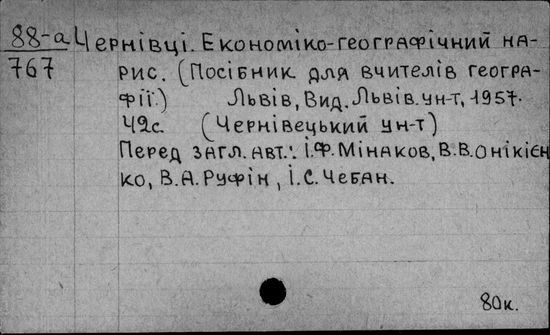 88-а Чернівці. Економіко-географічний на-
767 рис. (Посібник для вчителів геогра-
фії.) Львів, Вид. Львів. ун-т, 1957.
42с. (Чернівецький ун-т)
Перед загл. авт.: І.Ф. Мінаков, В.В. Онікієн
ко, В.А. Руфін, І.С. Чебан.
80к.